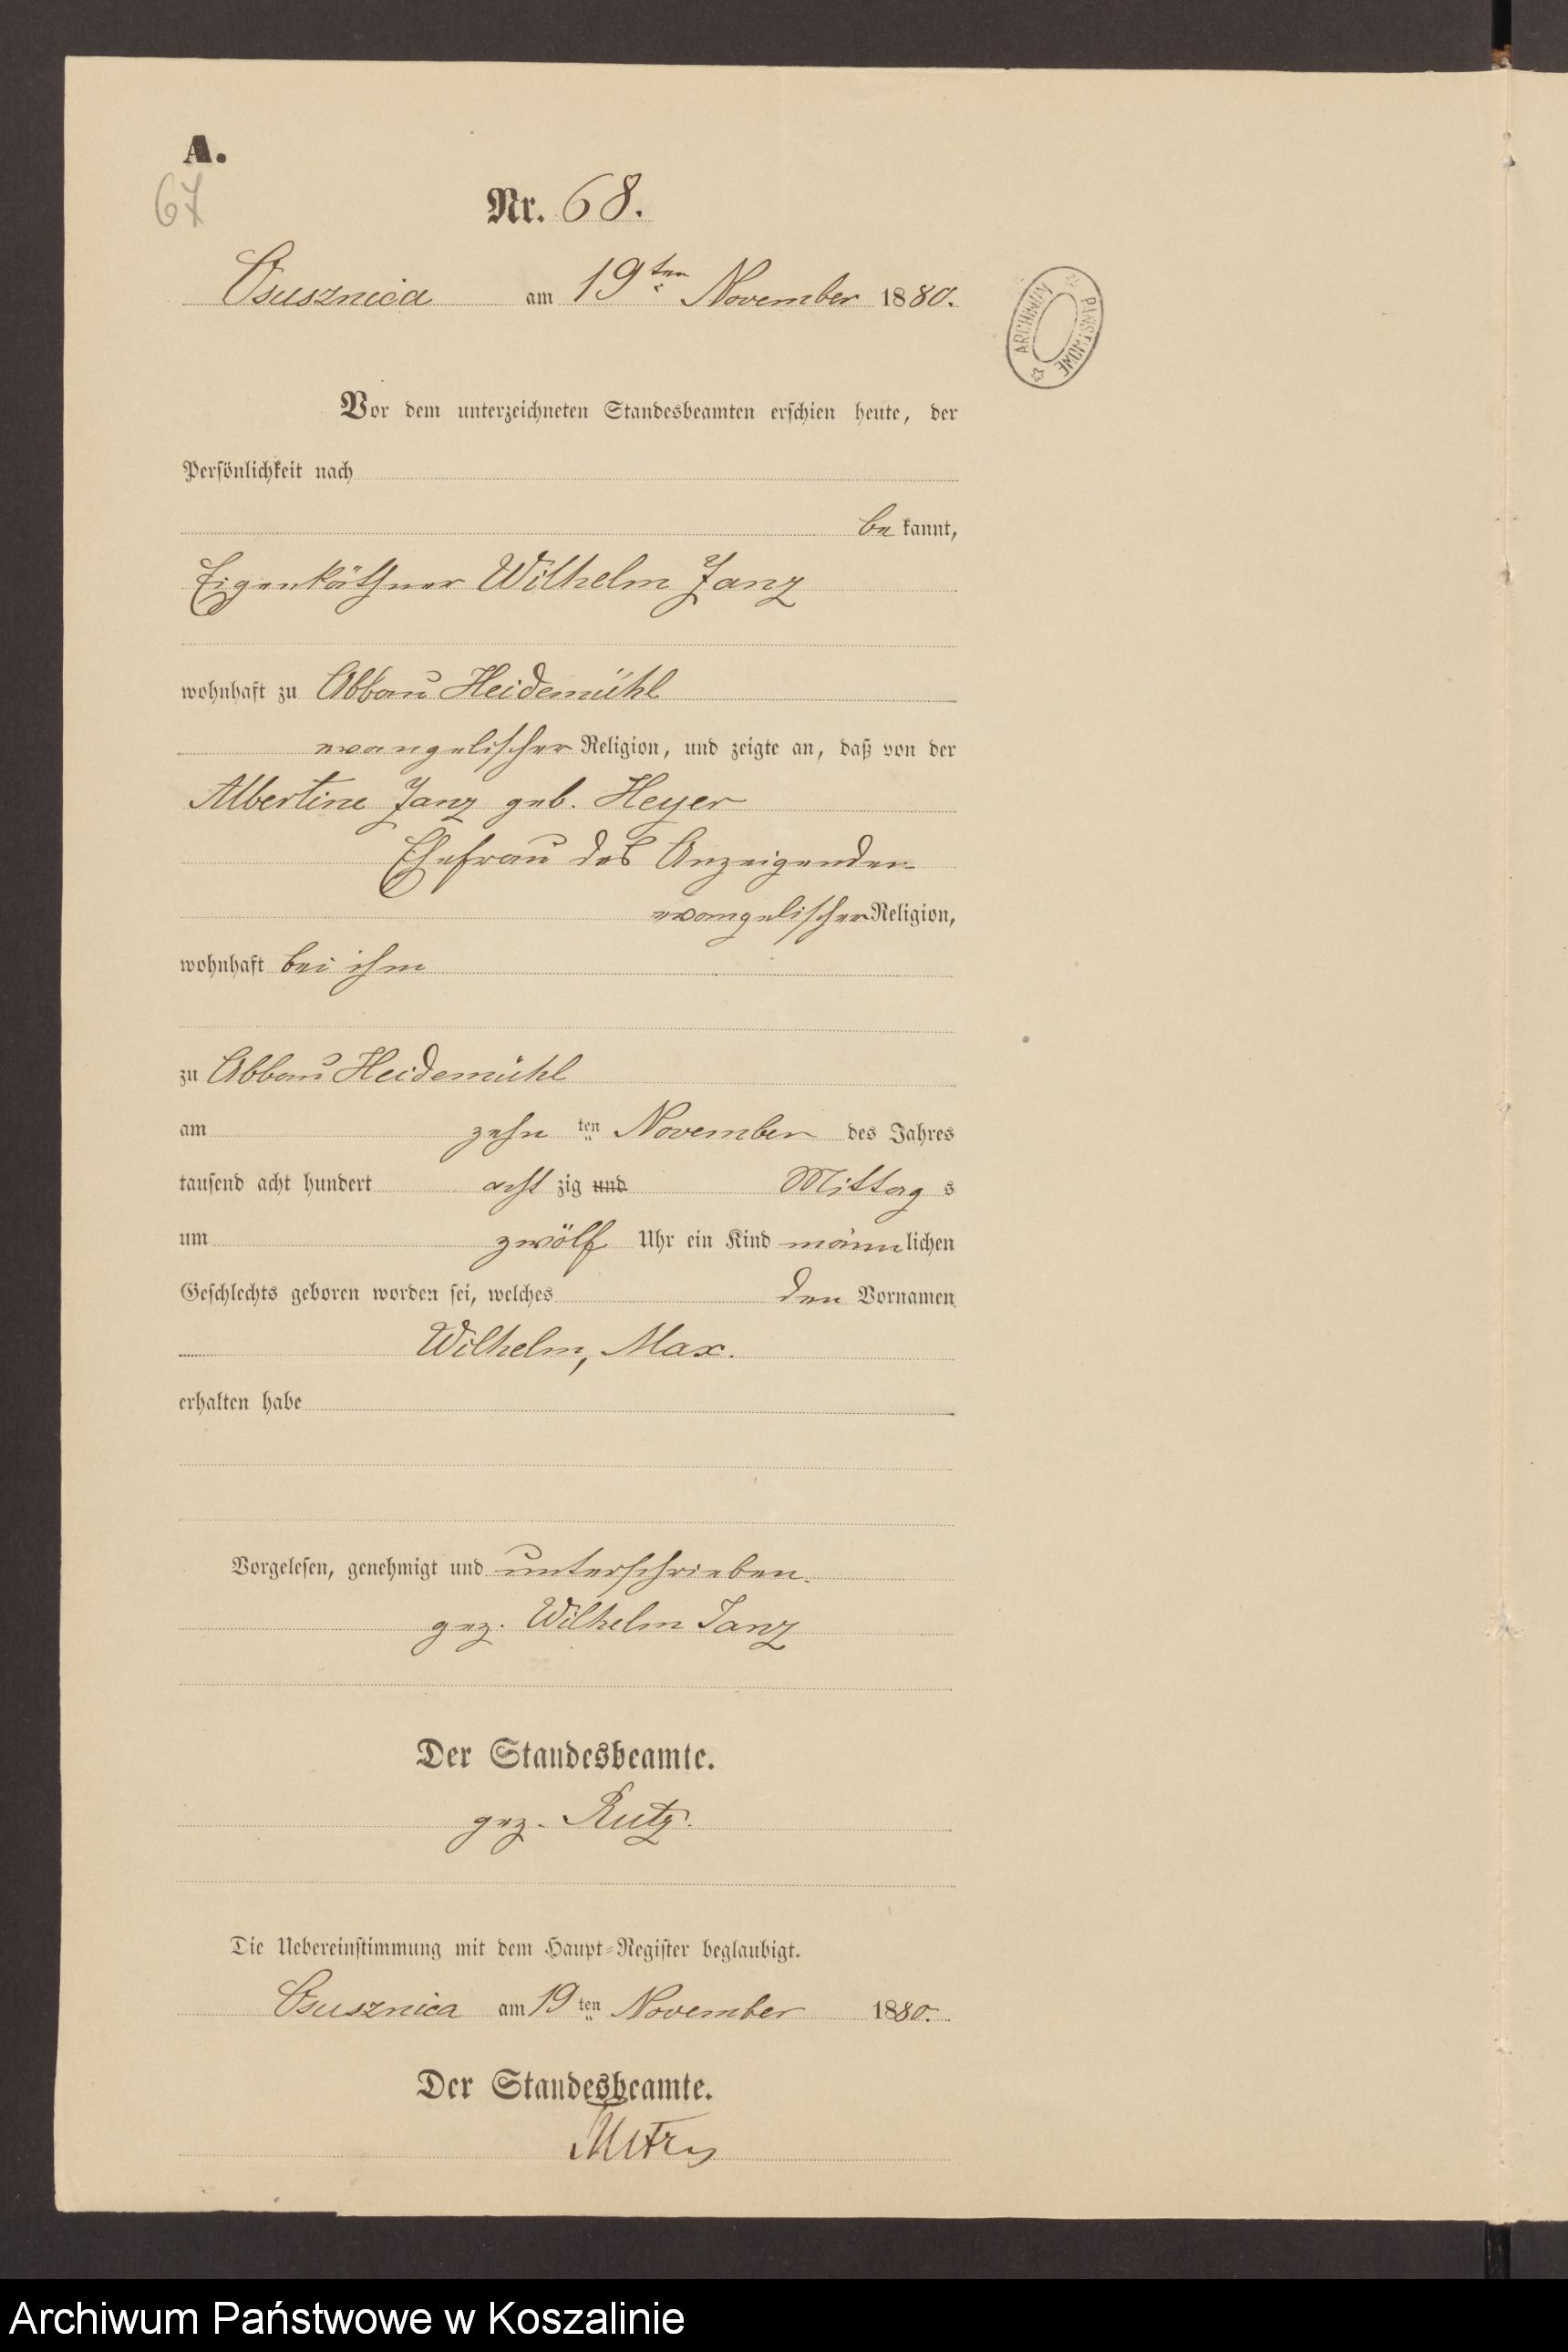 A.
67
Nr. 68.
Osusznica am 19ten November 1880.
ARCHIWUM PAŃSTWOWE
Vor dem unterzeichneten Standesbeamten erschien heute, der
Persönlichkeit nach
be kannt,
Eigenkäthner Wilhelm Janz
wohnhaft zu Abbau Heidemühl
evangelischer Religion, und zeigte an, daß von der
Albertine Janz geb. Heyer
Ehefrau des Anzeigenden
evangelischer Religion,
wohnhaft bei ihm
zu Abbau Heidemühl
am zehn ten November des Jahres
tausend acht hundert acht zig und Mittag s
um zwölf Uhr ein Kind männlichen
Geschlechts geboren worden sei, welches den Vornamen
Wilhelm, Max.
erhalten habe
Vorgelesen, genehmigt und unterschrieben.
gez. Wilhelm Janz
Der Standesbeamte.
gez. Rutz.
Die Uebereinstimmung mit dem Haupt-Register beglaubigt.
Osusznica am 19 ten November 1880.
Der Standesbeamte.
Archiwum Państwowe w Koszalinie